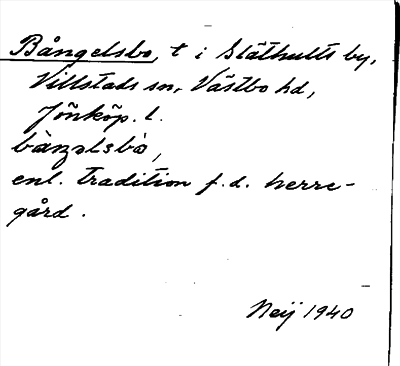 Bångelsbo, t i Släthults by,
Villstads sn, Västbo hd,
Jönköp. l.
båŋəlsbò,
enl. tradition f. d. herre-
gård.
Neij 1940